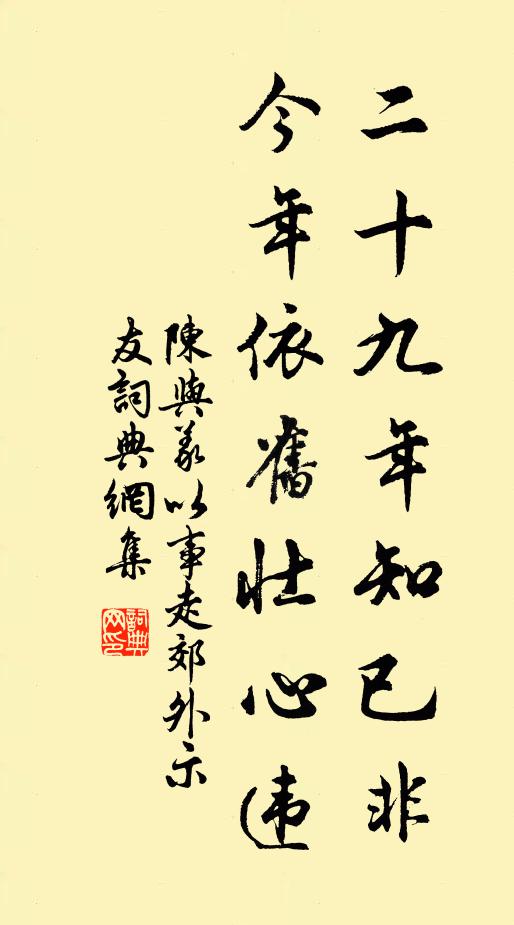 二十九年知已非
今年依舊壯心违
陳與義以事走郊外示
友詞典網集
詞典
网印